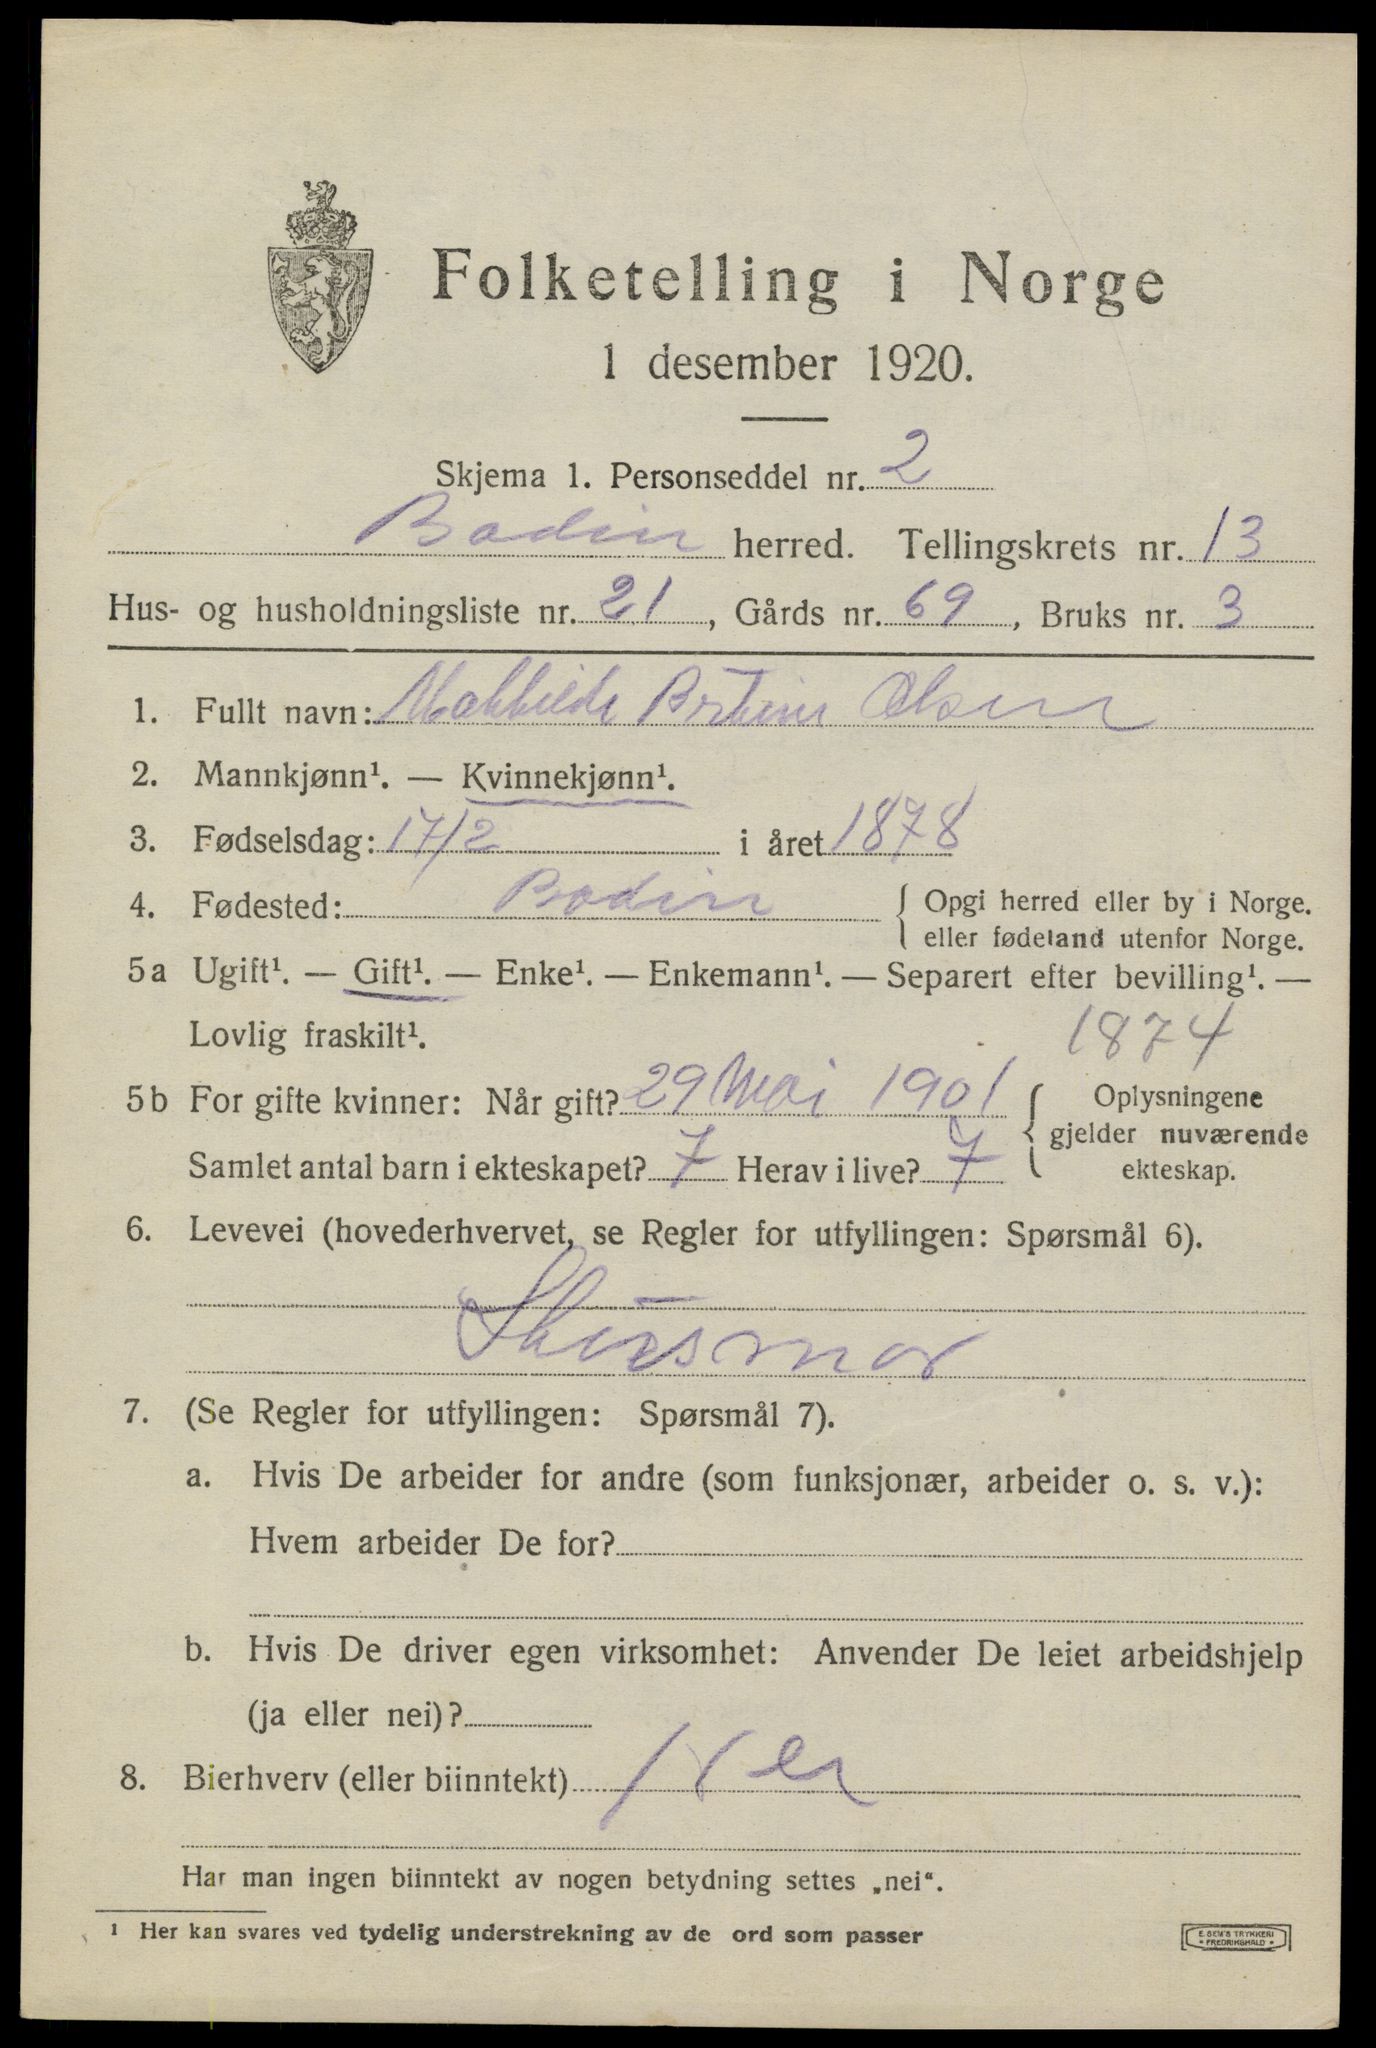 Folketelling i Norge
1 desember 1920.
Skjema 1. Personseddel nr. 2
Bodin herred. Tellingskrets nr. 13
Hus- og husholdningsliste nr. 21, Gårds nr. 69, Bruks nr. 3
1. Fullt navn: Olsen
2. Mannkjønn¹. — Kvinnekjønn¹.
3. Fødselsdag: 17/2 i året 1878
4. Fødested: Bodin { Opgi herred eller by i Norge.
eller fødeland utenfor Norge.
5a Ugift¹. — Gift¹. — Enke¹. — Enkemann¹. — Separert efter bevilling¹. —
Lovlig fraskilt¹. 1874
5b For gifte kvinner: Når gift? 29 Mai 1901 { Oplysningene
gjelder nuværende
Samlet antal barn i ekteskapet? 7 Herav i live? 7 ekteskap.
6. Levevei (hovederhvervet, se Regler for utfyllingen: Spørsmål 6).
7. (Se Regler for utfyllingen: Spørsmål 7).
a. Hvis De arbeider for andre (som funksjonær, arbeider o. s. v.):
Hvem arbeider De for?
b. Hvis De driver egen virksomhet: Anvender De leiet arbeidshjelp
(ja eller nei)?
8. Bierhverv (eller biinntekt) Nei
Har man ingen biinntekt av nogen betydning settes „nei“.
¹ Her kan svares ved tydelig understrekning av de ord som passer
E. SEM'S TRYKKERI
• FREDRIKSHALD •